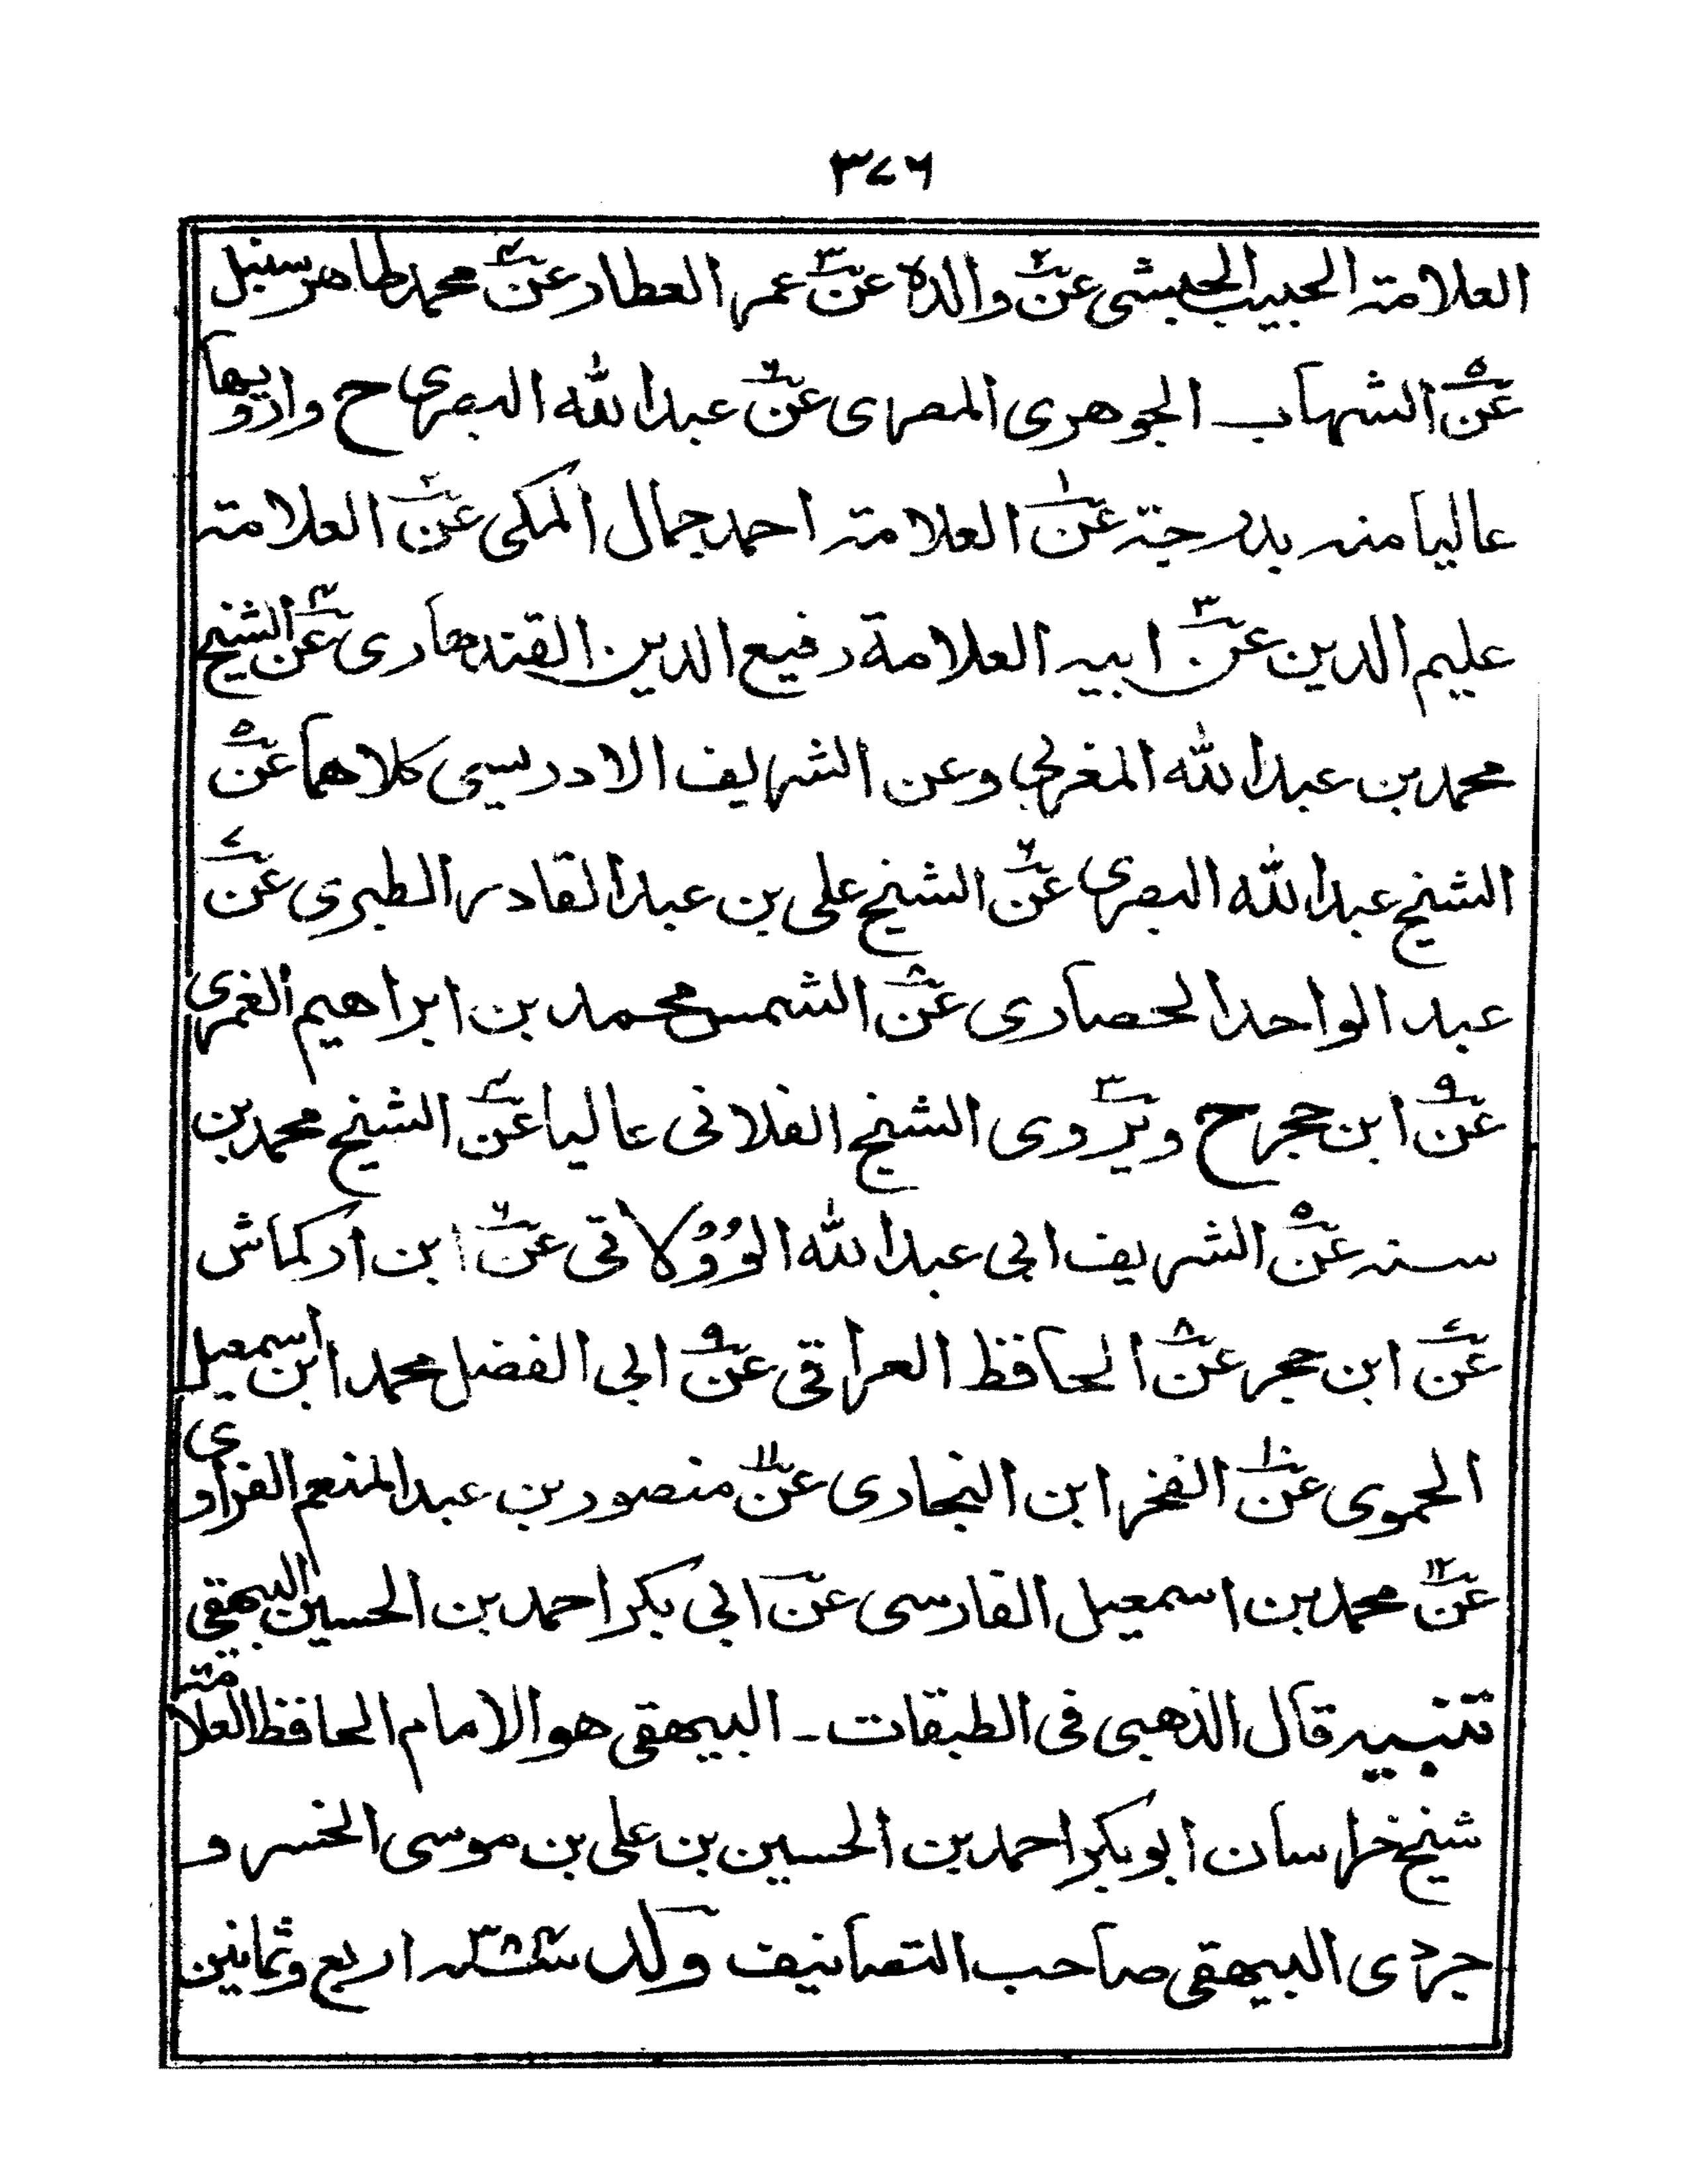 ٣٧٦
العلامة الحبيب الحبشي عن٢ والده عن٣ عمر العطار عن٤ محمد طاهر سنبل
عن٥ الشهاب الجوهرى المصرى عن٦ عبد الله البصرى ح وارويها
عاليا منه بدرجة عن١ العلامة احمد جمال المكى عن٢ العلامة
عليم الدين عن٣ ابيه العلامة رفيع الدين القندهارى عن٤ الشيخ
محمد بن عبد الله المغربي وعن الشريف الادريسى كلاهما عن٥
الشيخ عبد الله البصرى عن٦ الشيخ على بن عبد القادر الطبرى عن٧
عبد الواحد الحصارى عن٨ الشمس محمد بن ابراهيم الغمرى
عن٩ ابن حجر ح ويروى٣ الشيخ الفلانى عاليا عن٤ الشيخ محمد بن
سنه عن٥ الشريف ابى عبد الله الوُوُلاتى عن٦ ابن اركماش
عن٧ ابن حجر عن٨ الحافظ العراقى عن٩ ابى الفضل محمد ابن اسمعيل
الحموى عن١٠ الفخر ابن البخارى عن١١ منصور بن عبد المنعم الفراوى
عن١٢ محمد بن اسمعيل الفارسى عن ابى بكر احمد بن الحسين البيهقى
تنبيه قال الذهبى فى الطبقات ـ البيهقى هو الامام الحافظ العلامة
شيخ خراسان ابو بكر احمد بن الحسين بن على بن موسى الخسرو
جردى البيهقى صاحب التصانيف ولد سنة ٣٨٤ه اربع وثمانين